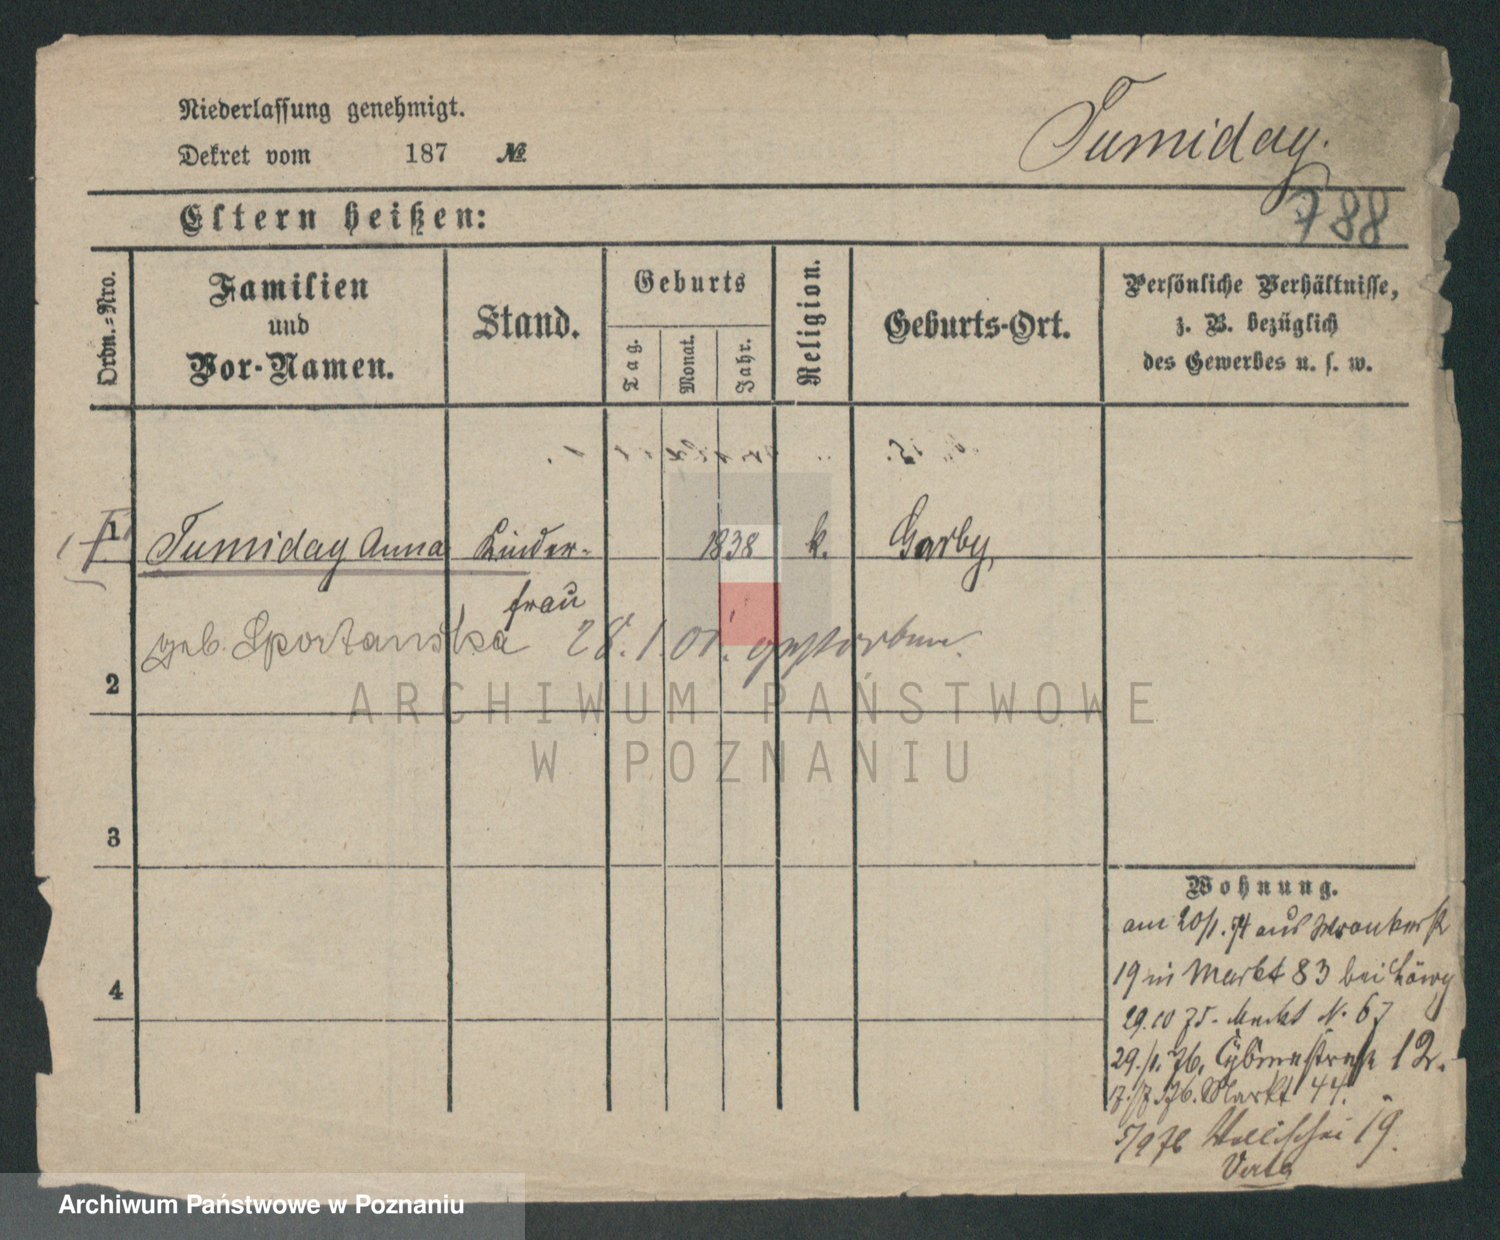 Niederlassung genehmigt.
Dekret vom 187 №
Tumiday.
788
Eltern heißen:
Ordn.=Nro.
Familien
und
Vor-Namen.
Stand.
Geburts
Tag.
Monat.
Jahr.
Religion.
Geburts-Ort.
Persönliche Verhältnisse,
z. B. bezüglich
des Gewerbes u. s. w.
1 Tumiday Anna Kinder- 1838 k. Garby,
frau
geb. Sportanska 28.1.01. gestorben.
2
ARCHIWUM PAŃSTWOWE
W POZNANIU
3
4
Wohnung.
am 20/1. 74 aus Wronkerst
19 in Markt 83 bei Löwy
29.10 75. Markt N. 67
29./1. 76, Cybinastraße 12.
17./7 76. Markt 44.
5/9 76 Wallischei 19.
Verte
Archiwum Państwowe w Poznaniu